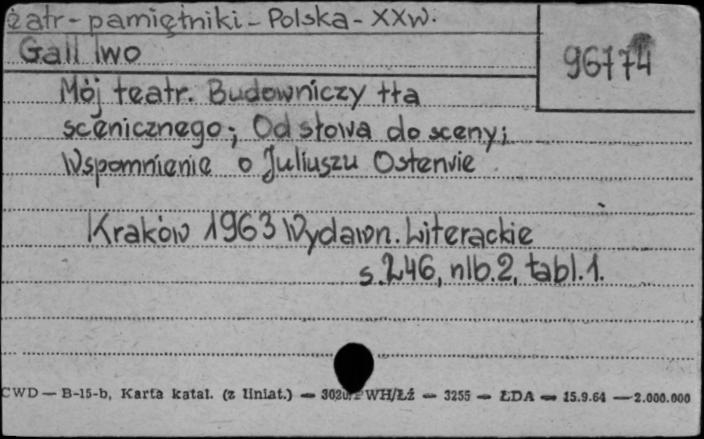 teatr - pamiętniki - Polska - XXw.
Gall Iwo
96774
Mój teatr. Budowniczy tła
scenicznego; Od słowa do sceny;
Wspomnienie o Juliuszu Osterwie
Kraków 1963 Wydawn. Literackie
s. 246, nlb. 2, tabl. 1.
CWD — B-15-b, Karta katal. (z liniat.) — WH/Łź — 3255 — ŁDA — 15.9.64 — 2.000.000